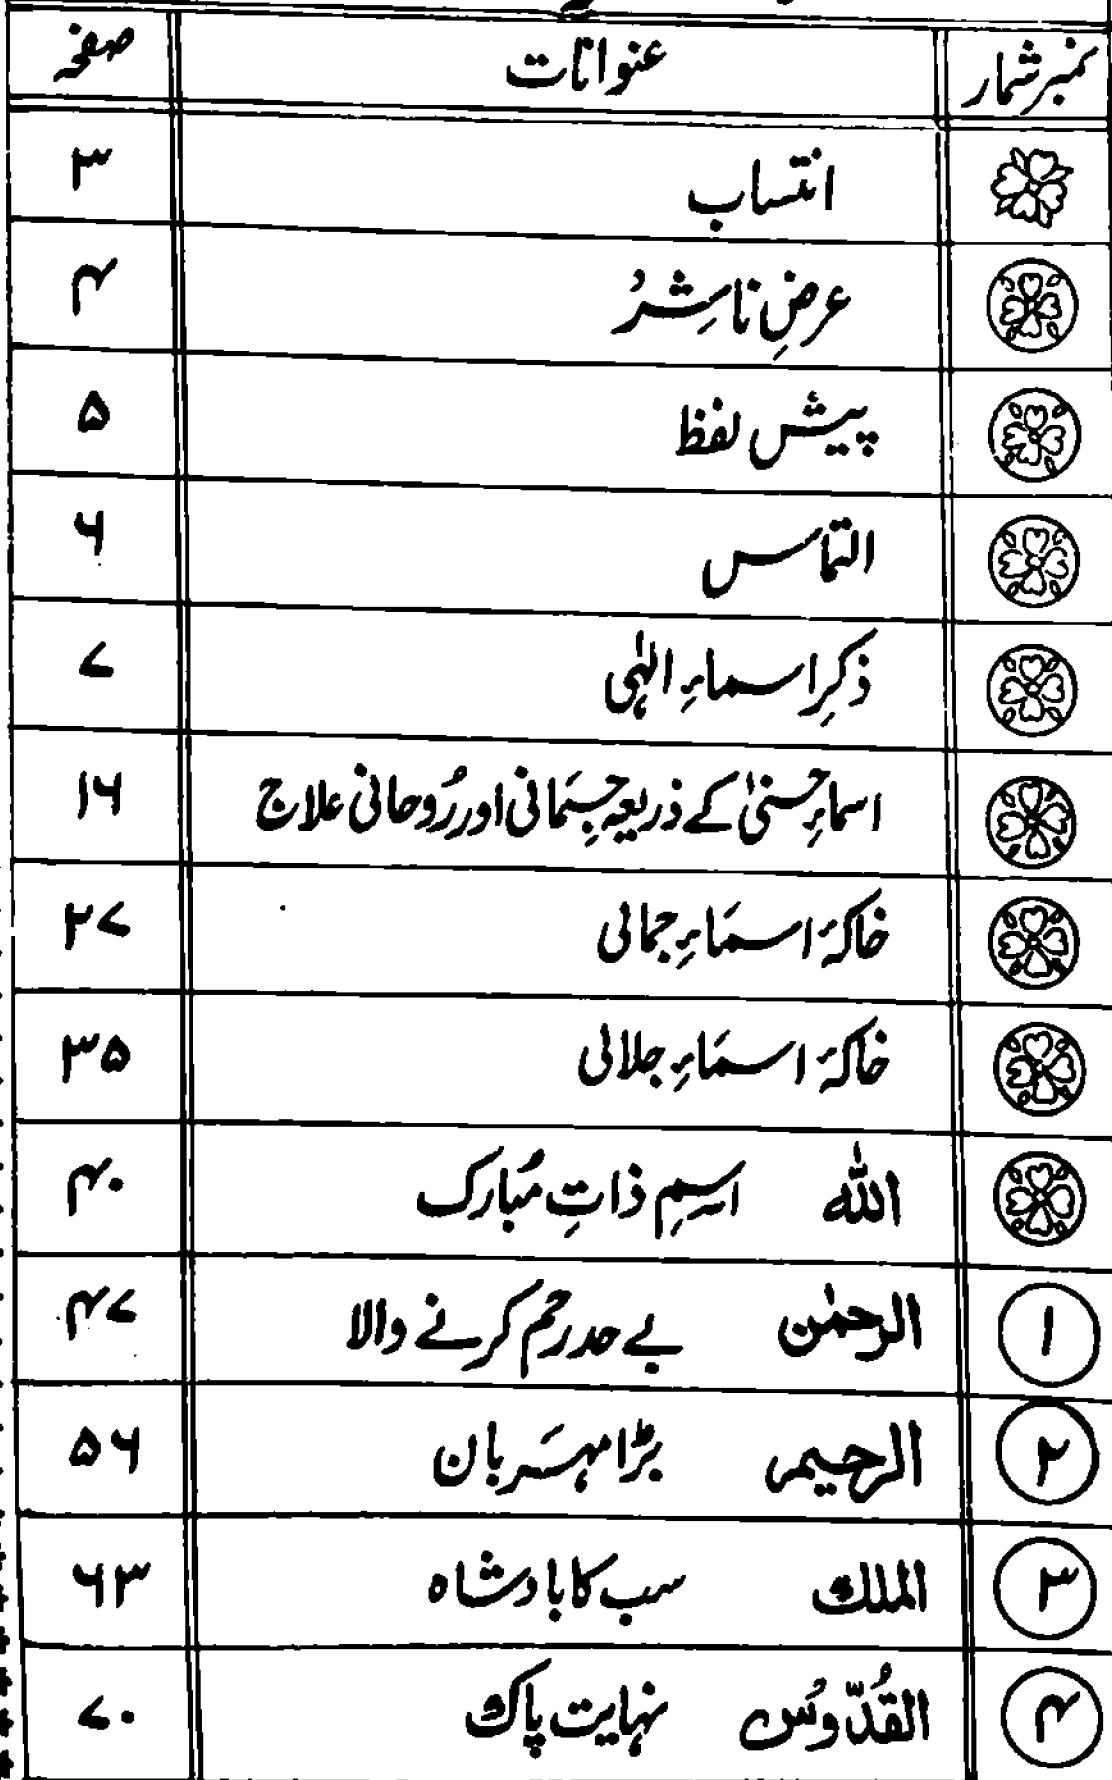 نمبر شمار عنوانات صفحہ
انتساب ۳
عرضِ ناشِرُ ۴
پیش لفظ ۵
التماس ۶
ذکرِ اسماءِ الہٰی ۷
اسماءِ حسنیٰ کے ذریعہ جِسَمانی اور رُوحانی علاج ۱۶
خاکۂ اسمَاءِ جمالی ۲۷
خاکۂ اسمَاءِ جلالی ۳۵
اللّٰہ اسِمِ ذاتِ مُبارک ۴۰
۱ الرحمٰن بے حد رحم کرنے والا ۴۷
۲ الرحیم بڑا مہرَبان ۵۶
۳ الملک سب کا بادشاہ ۶۳
۴ القُدّوُس نہایت پاک ۷۰